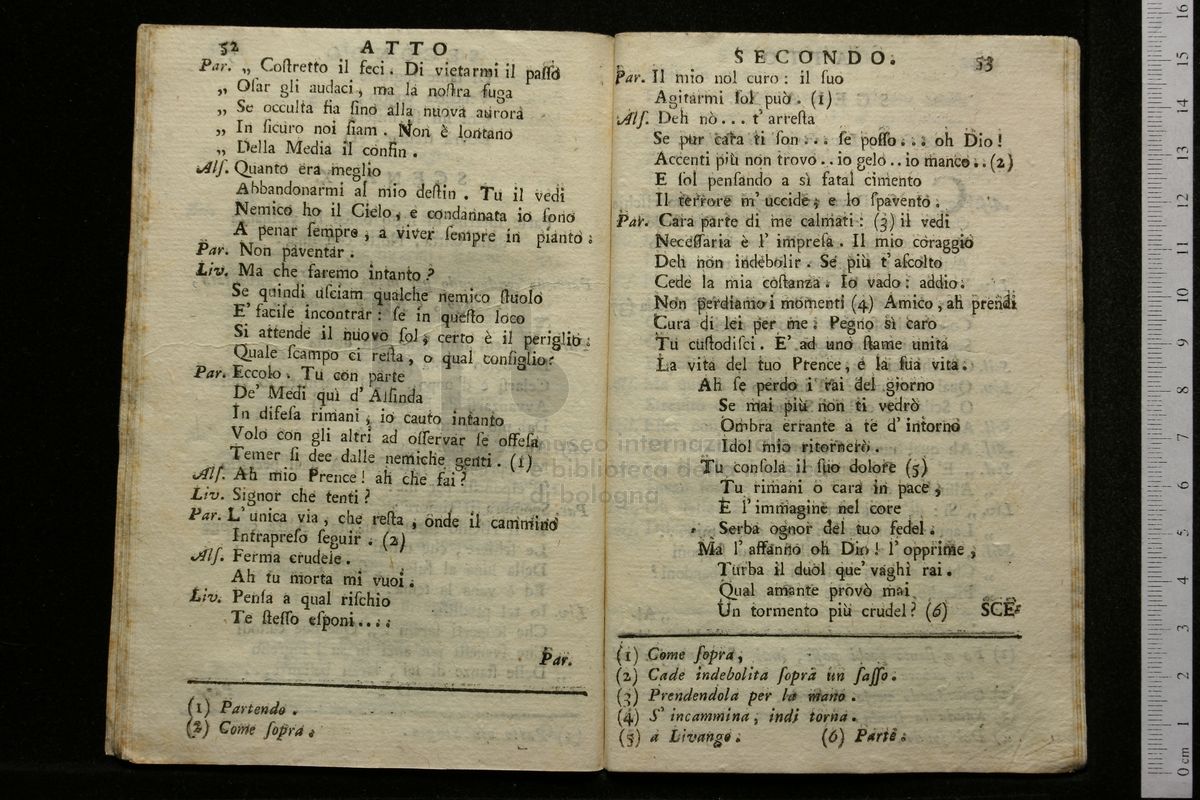 52 ATTO
Par. „ Coſtretto il feci. Di vietarmi il paſſo
„ Oſar gli audaci, ma la noſtra fuga
„ Se occulta fia ſino alla nuova aurora
„ In ſicuro noi ſiam. Non è lontano
„ Della Media il confin.
Alſ. Quanto era meglio
Abbandonarmi al mio deſtin. Tu il vedi
Nemico ho il Cielo, e condannata io ſono
A penar ſempre, a viver ſempre in pianto.
Par. Non paventar.
Liv. Ma che faremo intanto?
Se quindi uſciam qualche nemico ſtuolo
E' facile incontrar: ſe in queſto loco
Si attende il nuovo ſol, certo è il periglio.
Quale ſcampo ci reſta, o qual conſiglio?
Par. Eccolo. Tu con parte
De' Medi quì d' Alſinda
In difeſa rimani, io cauto intanto
Volo con gli altri ad oſſervar ſe offeſa
Temer ſi dee dalle nemiche genti. (1)
Alſ. Ah mio Prence! ah che fai?
Liv. Signor che tenti?
Par. L' unica via, che reſta, onde il cammino
Intrapreſo ſeguir. (2)
Alſ. Ferma crudele.
Ah tu morta mi vuoi.
Liv. Penſa a qual riſchio
Te ſteſſo eſponi....
Par.
(1) Partendo.
(2) Come ſopra.
SECONDO. 53
Par. Il mio nol curo: il ſuo
Agitarmi ſol può. (1)
Alſ. Deh nò... t' arreſta
Se pur cara ti ſon... ſe poſſo... oh Dio!
Accenti più non trovo.. io gelo.. io manco..(2)
E ſol penſando a sì fatal cimento
Il terrore m' uccide, e lo ſpavento.
Par. Cara parte di me calmati: (3) il vedi
Neceſſaria è l' impreſa. Il mio coraggio
Deh non indebolir. Se più t' aſcolto
Cede la mia coſtanza. Io vado: addio.
Non perdiamo i momenti (4) Amico, ah prendi
Cura di lei per me. Pegno sì caro
Tu cuſtodiſci. E' ad uno ſtame unita
La vita del tuo Prence, e la ſua vita.
Ah ſe perdo i rai del giorno
Se mai più non ti vedrò
Ombra errante a te d' intorno
Idol mio ritornerò.
Tu conſola il ſuo dolore (5)
Tu rimani o cara in pace,
E l' immagine nel core
Serba ognor del tuo fedel.
Ma l' affanno oh Dio! l' opprime,
Turba il duol que' vaghi rai.
Qual amante provò mai
Un tormento più crudel? (6) SCE-
(1) Come ſopra,
(2) Cade indebolita ſopra un ſaſſo.
(3) Prendendola per la mano.
(4) S' incammina, indi torna.
(5) a Livango. (6) Parte.
museo internazionale
e biblioteca della
di bologna
16
15
14
13
12
11
10
9
8
7
6
5
4
3
2
1
0 cm